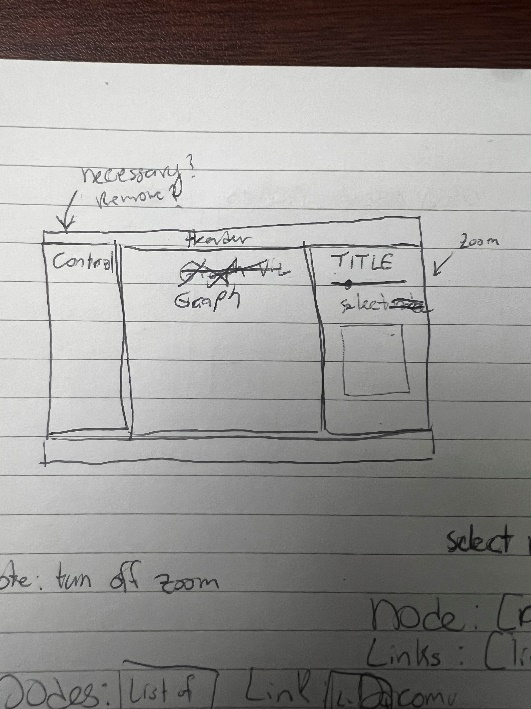 necessary?
Remove?
Header
Zoom
Control
TITLE
Graph
select
select
ote: turn off zoom
Node: [
Links: [li
Nodes: List of Link